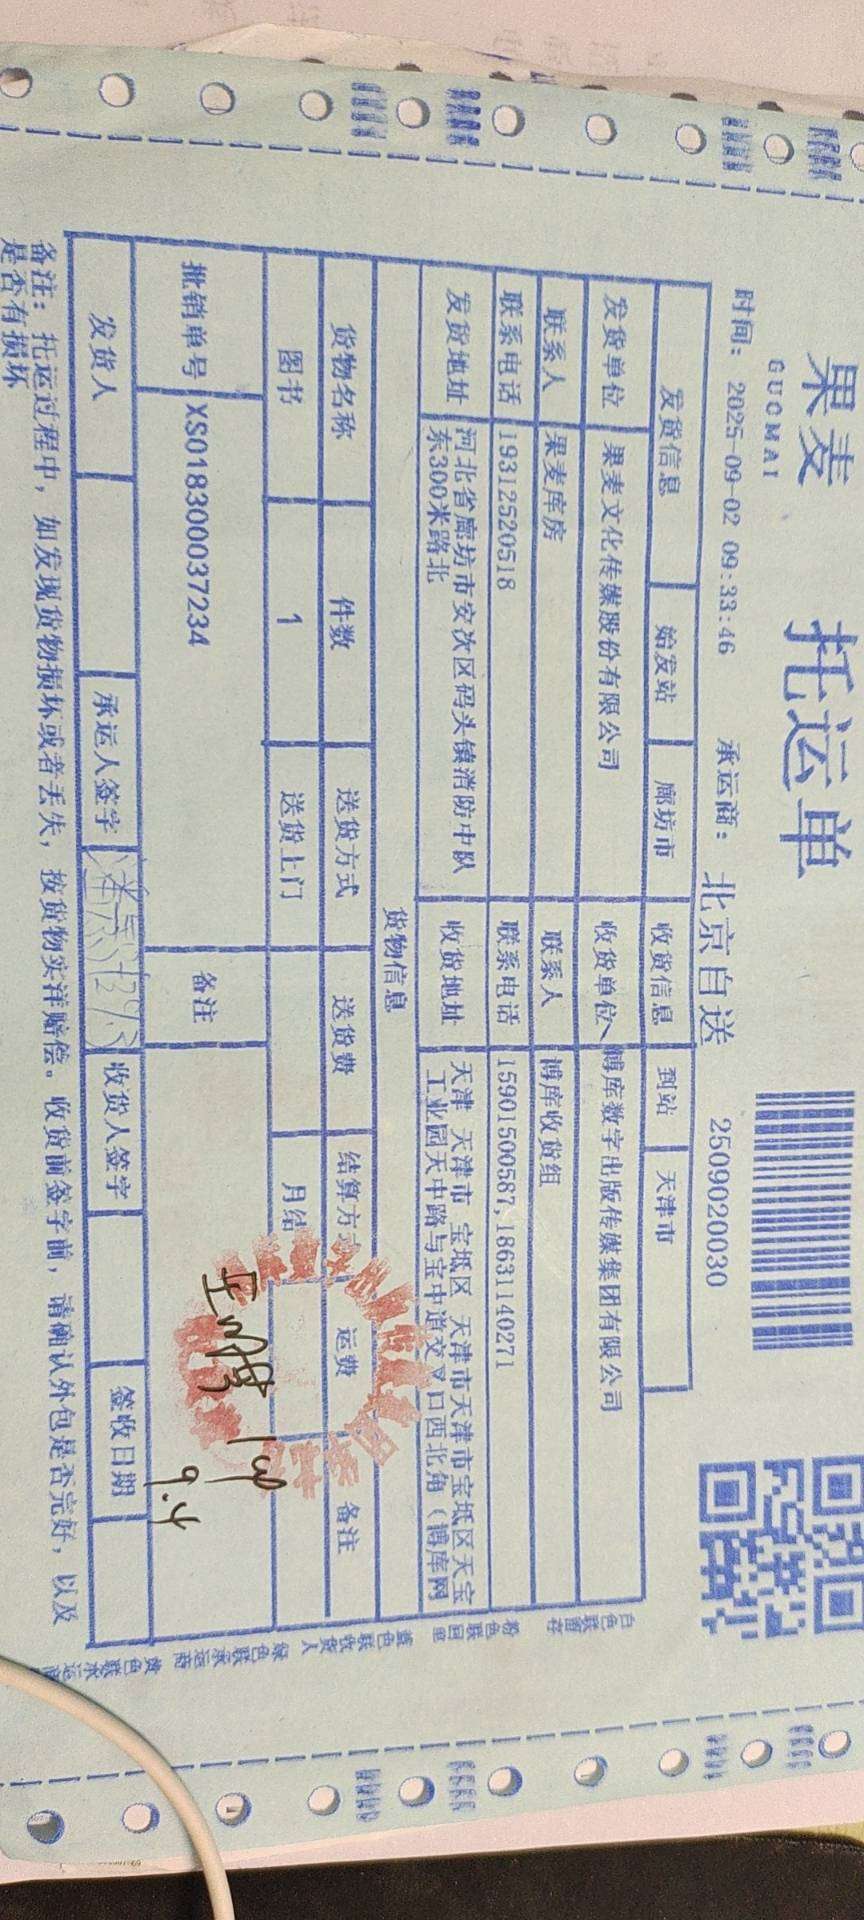 果麦
GUOMAI
托运单
时间：2025-09-02 09:33:46 承运商：北京自送 2509020030
发货信息 始发站 廊坊市 收货信息 到站 天津市
发货单位 果麦文化传媒股份有限公司 收货单位 博库数字出版传媒集团有限公司
联系人 果麦库房 联系人 博库收货组
联系电话 19312520518 联系电话 15901500587,18631140271
发货地址 河北省廊坊市安次区码头镇消防中队东300米路北 收货地址 天津 天津市 宝坻区 天津市天津市宝坻区天宝工业园天中路与宝中道交叉口西北角（博库网
货物信息
货物名称 件数 送货方式 送货费 结算方式 运费 备注
图书 1 送货上门 月结
批销单号 XS018300037234 备注
1件
9.4
发货人 承运人签字 收货人签字 签收日期
备注：托运过程中，如发现货物损坏或者丢失，按货物实洋赔偿。收货前签字前，请确认外包是否完好，以及
是否有损坏
白色联留存
粉色联回单
蓝色联收货人
绿色联承运商
黄色联承运商